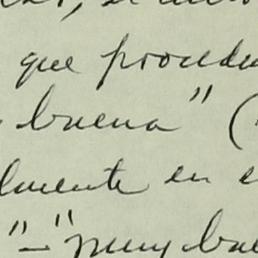 que proceden
buena" (
lmente en e
"—" muy bue